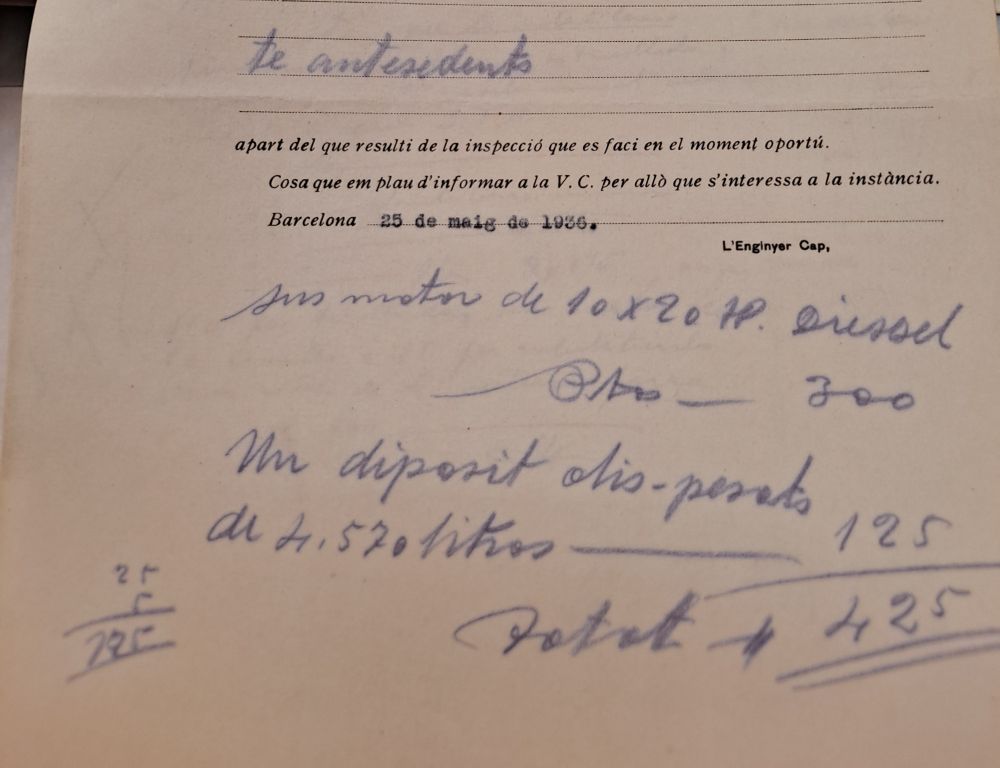 te antesedents
apart del que resulti de la inspecció que es faci en el moment oportú.
Cosa que em plau d'informar a la V. C. per allò que s'interessa a la instància.
Barcelona 25 de maig de 1936.
L'Enginyer Cap,
sus motor de 10 x 20 HP. Diessel
Ptas — 300
Un diposit olis-pesats
de 4.570 litros — 125
Total # 425
25
5
125